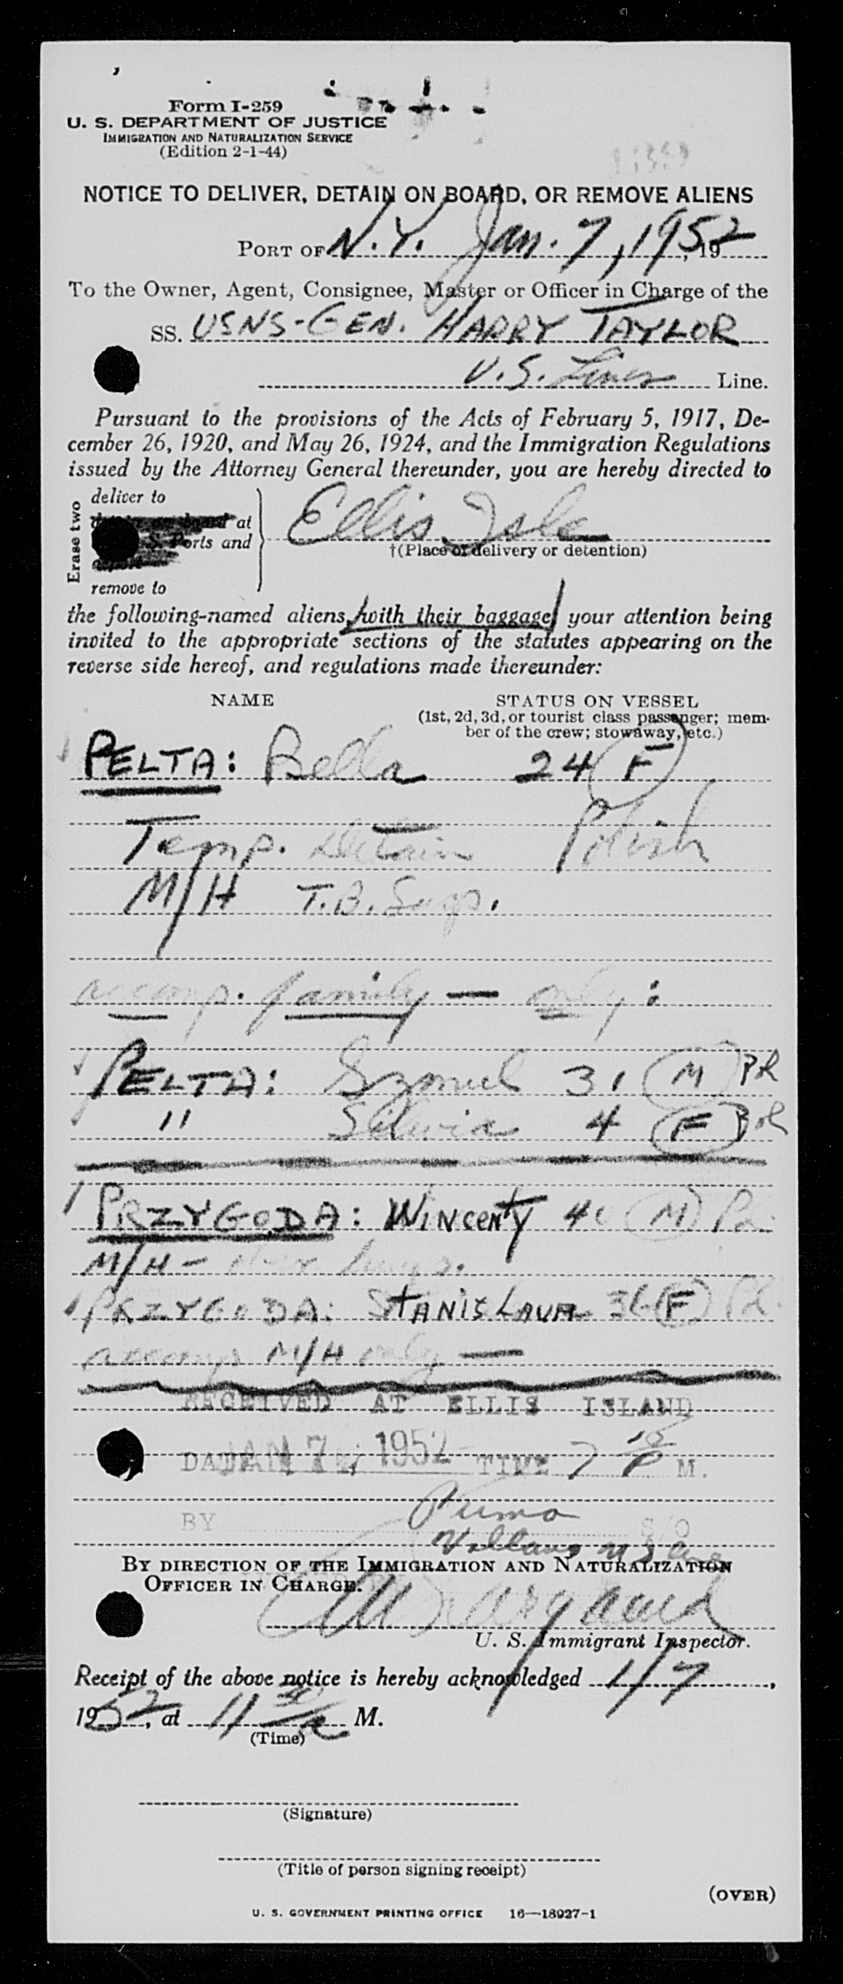 Form I-259
U. S. DEPARTMENT OF JUSTICE
IMMIGRATION AND NATURALIZATION SERVICE
(Edition 2-1-44)
NOTICE TO DELIVER, DETAIN ON BOARD, OR REMOVE ALIENS
PORT OF N.Y. Jan. 7, 1952, 19
To the Owner, Agent, Consignee, Master or Officer in Charge of the
SS. USNS-GEN. HARRY TAYLOR
U.S. Lines Line.
Pursuant to the provisions of the Acts of February 5, 1917, De-
cember 26, 1920, and May 26, 1924, and the Immigration Regulations
issued by the Attorney General thereunder, you are hereby directed to
Erase two
deliver to
at
S. Ports and
remove to
Ellis Isle
†(Place of delivery or detention)
the following-named aliens, with their baggage, your attention being
invited to the appropriate sections of the statutes appearing on the
reverse side hereof, and regulations made thereunder:
NAME STATUS ON VESSEL
(1st, 2d, 3d, or tourist class passenger; mem-
ber of the crew; stowaway, etc.)
PELTA: Bella 24 (F)
Temp. Detain Polish
M/H T.B. Susp.
accomp. family — only:
PELTA: Szmul 31 (M) Pol
" 4 (F) Pol
PRZYGODA: WINCENTY (M)
M/H -
PRZYGODA: STANISLAVA 36 (F)
accomp M/H only —
RECEIVED AT ELLIS ISLAND
DATE JAN 7 1952 TIME 7 10 P M.
BY
BY DIRECTION OF THE IMMIGRATION AND NATURALIZATION
OFFICER IN CHARGE.
U. S. Immigrant Inspector.
Receipt of the above notice is hereby acknowledged 1/7,
1952, at 11 30/a M.
(Time)
(Signature)
(Title of person signing receipt)
(OVER)
U. S. GOVERNMENT PRINTING OFFICE 16—18927-1